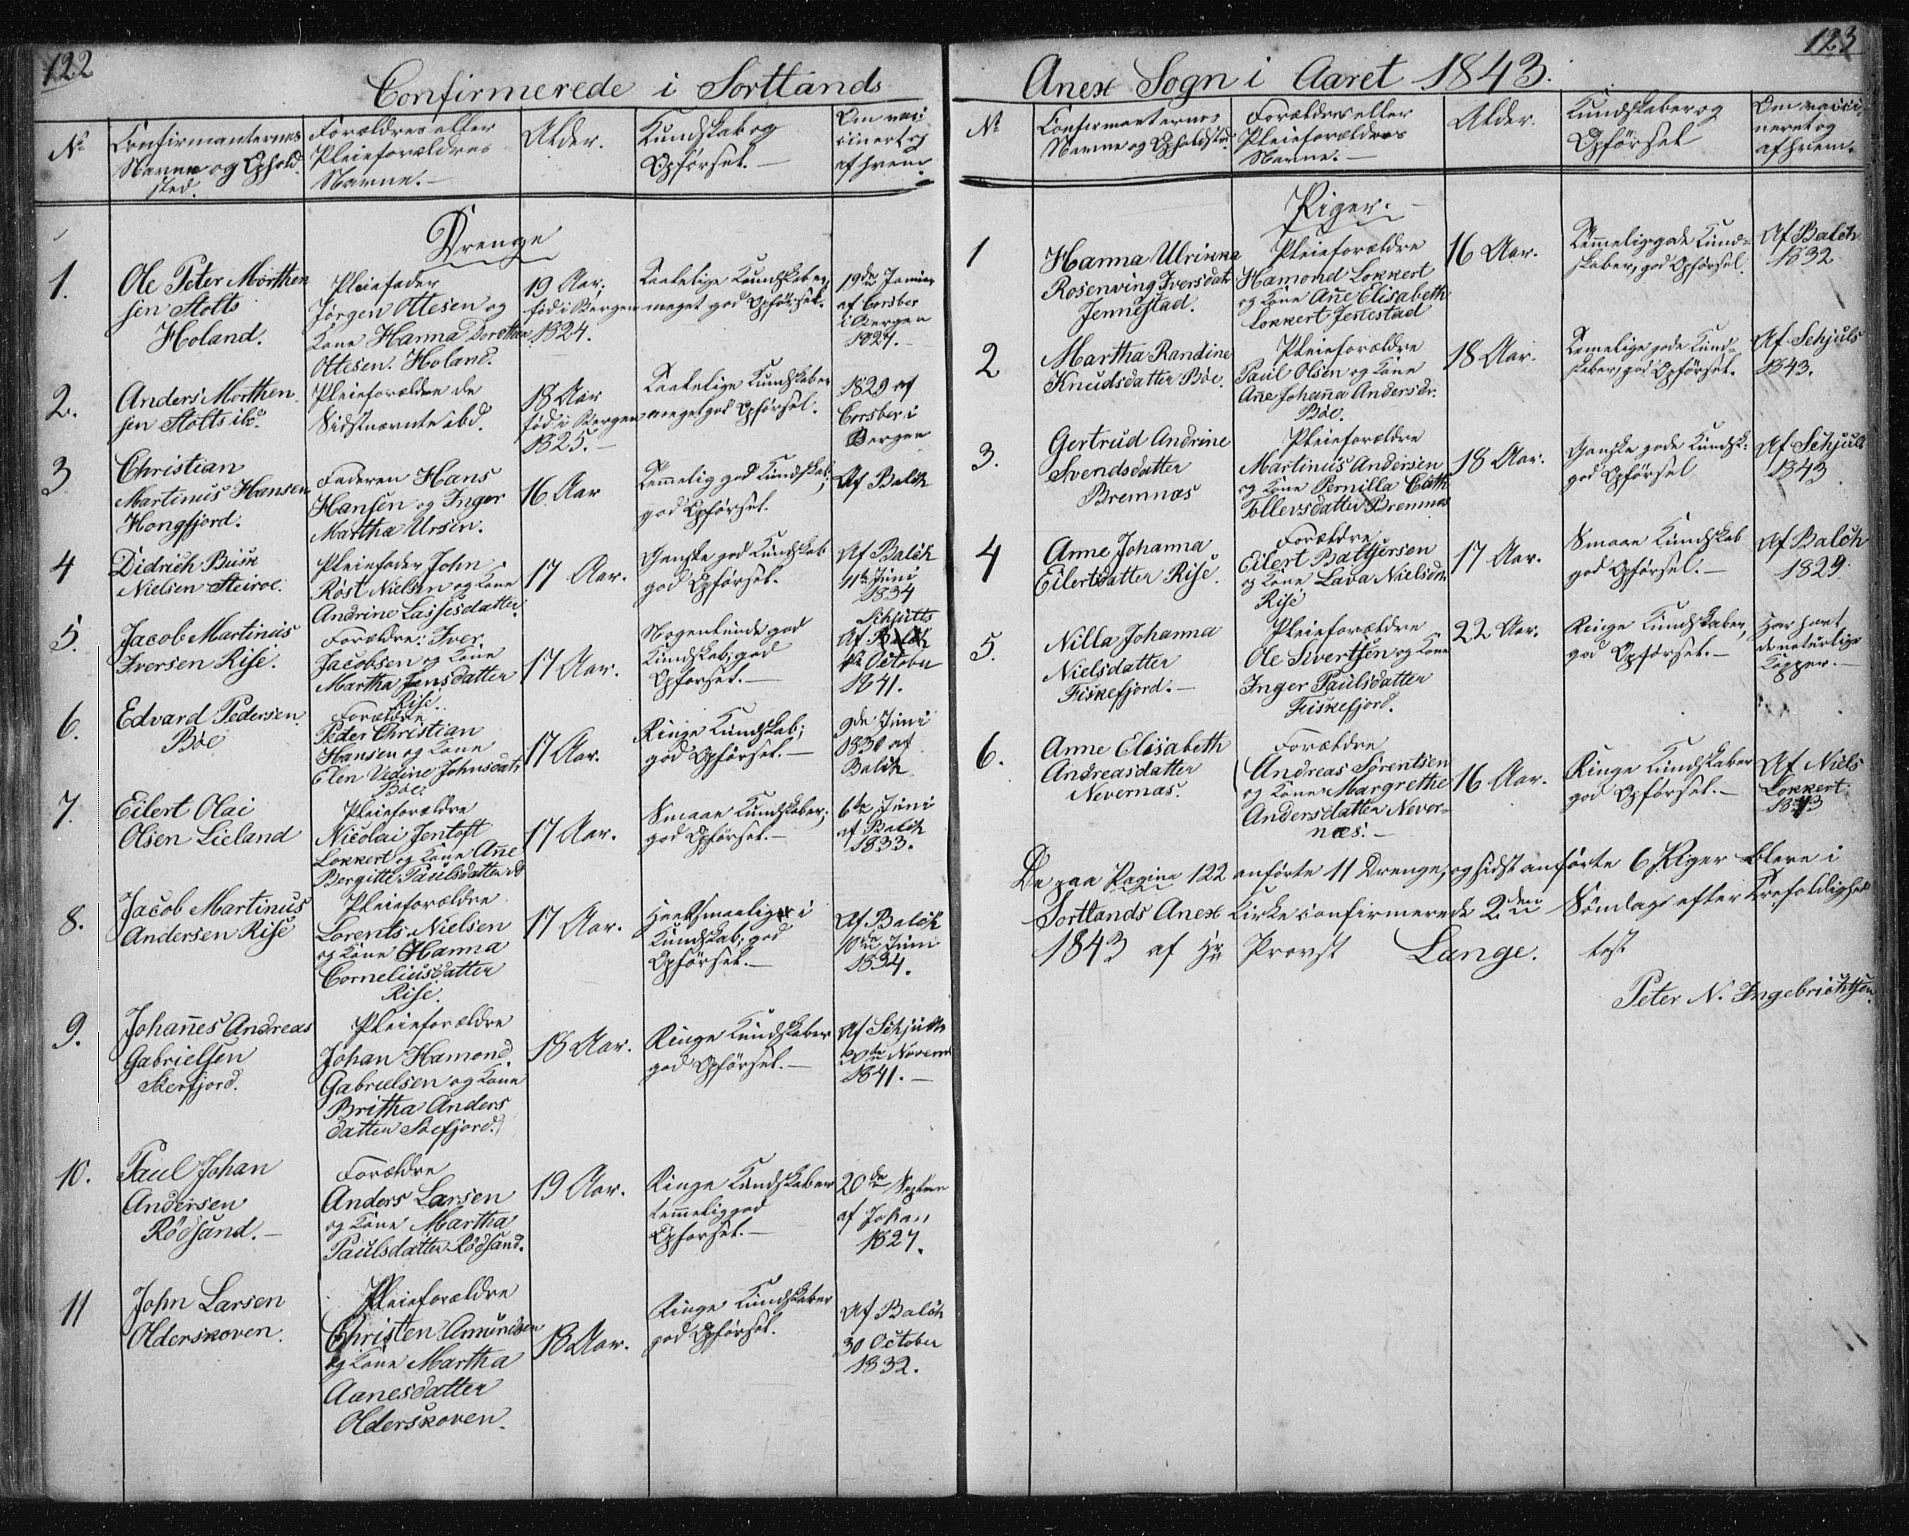 122
Confirmerede i Sortlands
No
Confirmanternes
Navne og Ophold-
sted.
Forældres eller
Pleieforældres
Navne.-
Alder.
Kundskab og
Opførsel.-
Om vac-
cineret og
af hvem
Drenge
1.
Ole Peter Morthen
sen Stolts
Holand.
Pleiefader
Jørgen Ottesen og
Kone Hanna Dorothea
Ottesen. Holand.
19 Aar,
fød i Bergen
1824.
Kundskaber,
meget god Opførsel.
19de Januar
af
i Bergen
1827.-
2.
Anders Morthen
sen Stolts ibd.
Pleieforældre de
Sidstnævnte ibd.
18 Aar
fød i Bergen
1825.-
Kundskaber
meget god Opførsel.
1829 af
i
Bergen
3
Christian
Martinus Hansen
Hongfjord.
Faderen Hans
Hansen og Inger
Martha Ursin.
16 Aar
Temmelig god Kundskab;
god Opførsel.
Af Balch
4
Didrich Busk
Nielsen Steiroe.
Pleiefader John
Røst Nielsen og Kone
Andrine Lassesdatter.
17 Aar.
Ganske god Kundskab
god Opførsel.
Af Balch
11te Juni
1834
5.
Jacob Martinus
Iversen Rise.
Forældre: Iver
Jacobsen og Kone
Martha Jensdatter
Rise.
17 Aar.
Nogenlunde god
Kundskab; god
Opførsel.-
Schjults
Af Balch
October
1841.
6.
Edvard Pedersen
Bøe
Forældre
Peder Christian
Hansen og Kone
Elen Vedine Johnsdatr
Bøe
17 Aar.
Ringe Kundskab;
god Opførsel.-
9de Juni
1830 af
Balch
7.
Eilert Olai
Olsen Lieland
Pleieforældre
Nicolai Jentoft
Lokkert og Kone Añe
Bergitte Paulsdatter
17 Aar.
Smaae Kundskaber;
god Opførsel.-
6te Juni
af Balch
1833.
8.
Jacob Martinus
Andersen Rise
Pleieforældre
Lorents Nielsen
og Kone Hanna
Corneliusdatter
Rise.
17 Aar.
i
Kundskab; god
Opførsel.-
Af Balch
10de Juni
1834.
9.
Johañes Andreas
Gabrielsen
Pleieforældre
Johan Hamond
Gabrielsen og Kone
Britha Anders
datter
18 Aar.
Ringe Kundskaber
god Opførsel.-
Af Schjults
Novemb
1841.-
10.
Paul Johan
Andersen
Rødsand.-
Forældre
Anders Larsen
og Kone Martha
Paulsdatter Rødsand.
19 Aar.
Ringe Kundskaber
temmelig god
Opførsel.-
20de Septem
af Johan
1827.
11
John Larsen
Olderskoven.
Pleieforældre
Christen Amundsen
og Kone Martha
Aanesdatter
Olderskoven.
18 Aar.
Ringe Kundskaber
god Opførsel.
Af Balch
30 October
1832.
123
Anex Sogn i Aaret 1843.
No
Confirmanternes
Navne og Opholdsted
Forældres eller
Pleieforældres
Navne.-
Alder.
Kundskaber og
Opførsel
Om vacci-
neret og
af hvem.
Piger.-
1
Hanna Ulrikka
Rosenving Iversdatr
Jennestad.
Pleieforældre
Hamond Lokkert
og Kone Añe Elisabeth
Lokkert Jenestad
16 Aar.
Temmelig gode Kund-
skaber, god Opførsel.
Af Balch
1832.
2
Martha Randine
Knudsdatter Bøe.
Pleieforældre
Paul Olsen og Kone
Añe Johaña Andersdr.
Bøe.
18 Aar.
Temelige gode Kund-
skaber, god Opførsel.
Af Schjults
1843.
3.
Gertrud Andrine
Svendsdatter
Bremnæs
Pleieforældre
Martinus Andersen
og Kone Pernilla Cath
Tollevsdatter Bremnæs
18 Aar.
Ganske gode Kundsk-
god Opførsel
Af Schjult
1843
4
Anne Johanna
Eilertsdatter Rise.
Forældre
Eilert Baltzersen
og Kone Lava Nielsdr
Rise
17 Aar.
Smaae Kundskab
god Opførsel.-
Af Balch
1829.
5.
Nilla Johanna
Nielsdatter
Fiskefjord.-
Pleieforældre
Ole Sivertsen og Kone
Inger Paulsdatter
Fiskefjord.
22 Aar.
Ringe Kundskaber,
god Opførsel.-
Har havt
de naturlige
Kopper.-
6.
Anne Elisabeth
Andreasdatter
Nevernæs.
Forældre
Andreas Sørentsen
og Kone Margrethe
Andersdatter Never-
næs.-
16 Aar.
Ringe Kundskaber
god Opførsel.-
Af Niels
Lokkert.
1843
De paa Pagina 122 anførte 11 Drenge, og sidst anførte 6 Piger bleve i
Sortlands Anex Kirke confirmerede 2den Søndag efter Trefoldighed
1843 af Hr Provst Lange. test
Peter N. Ingebrichtsen